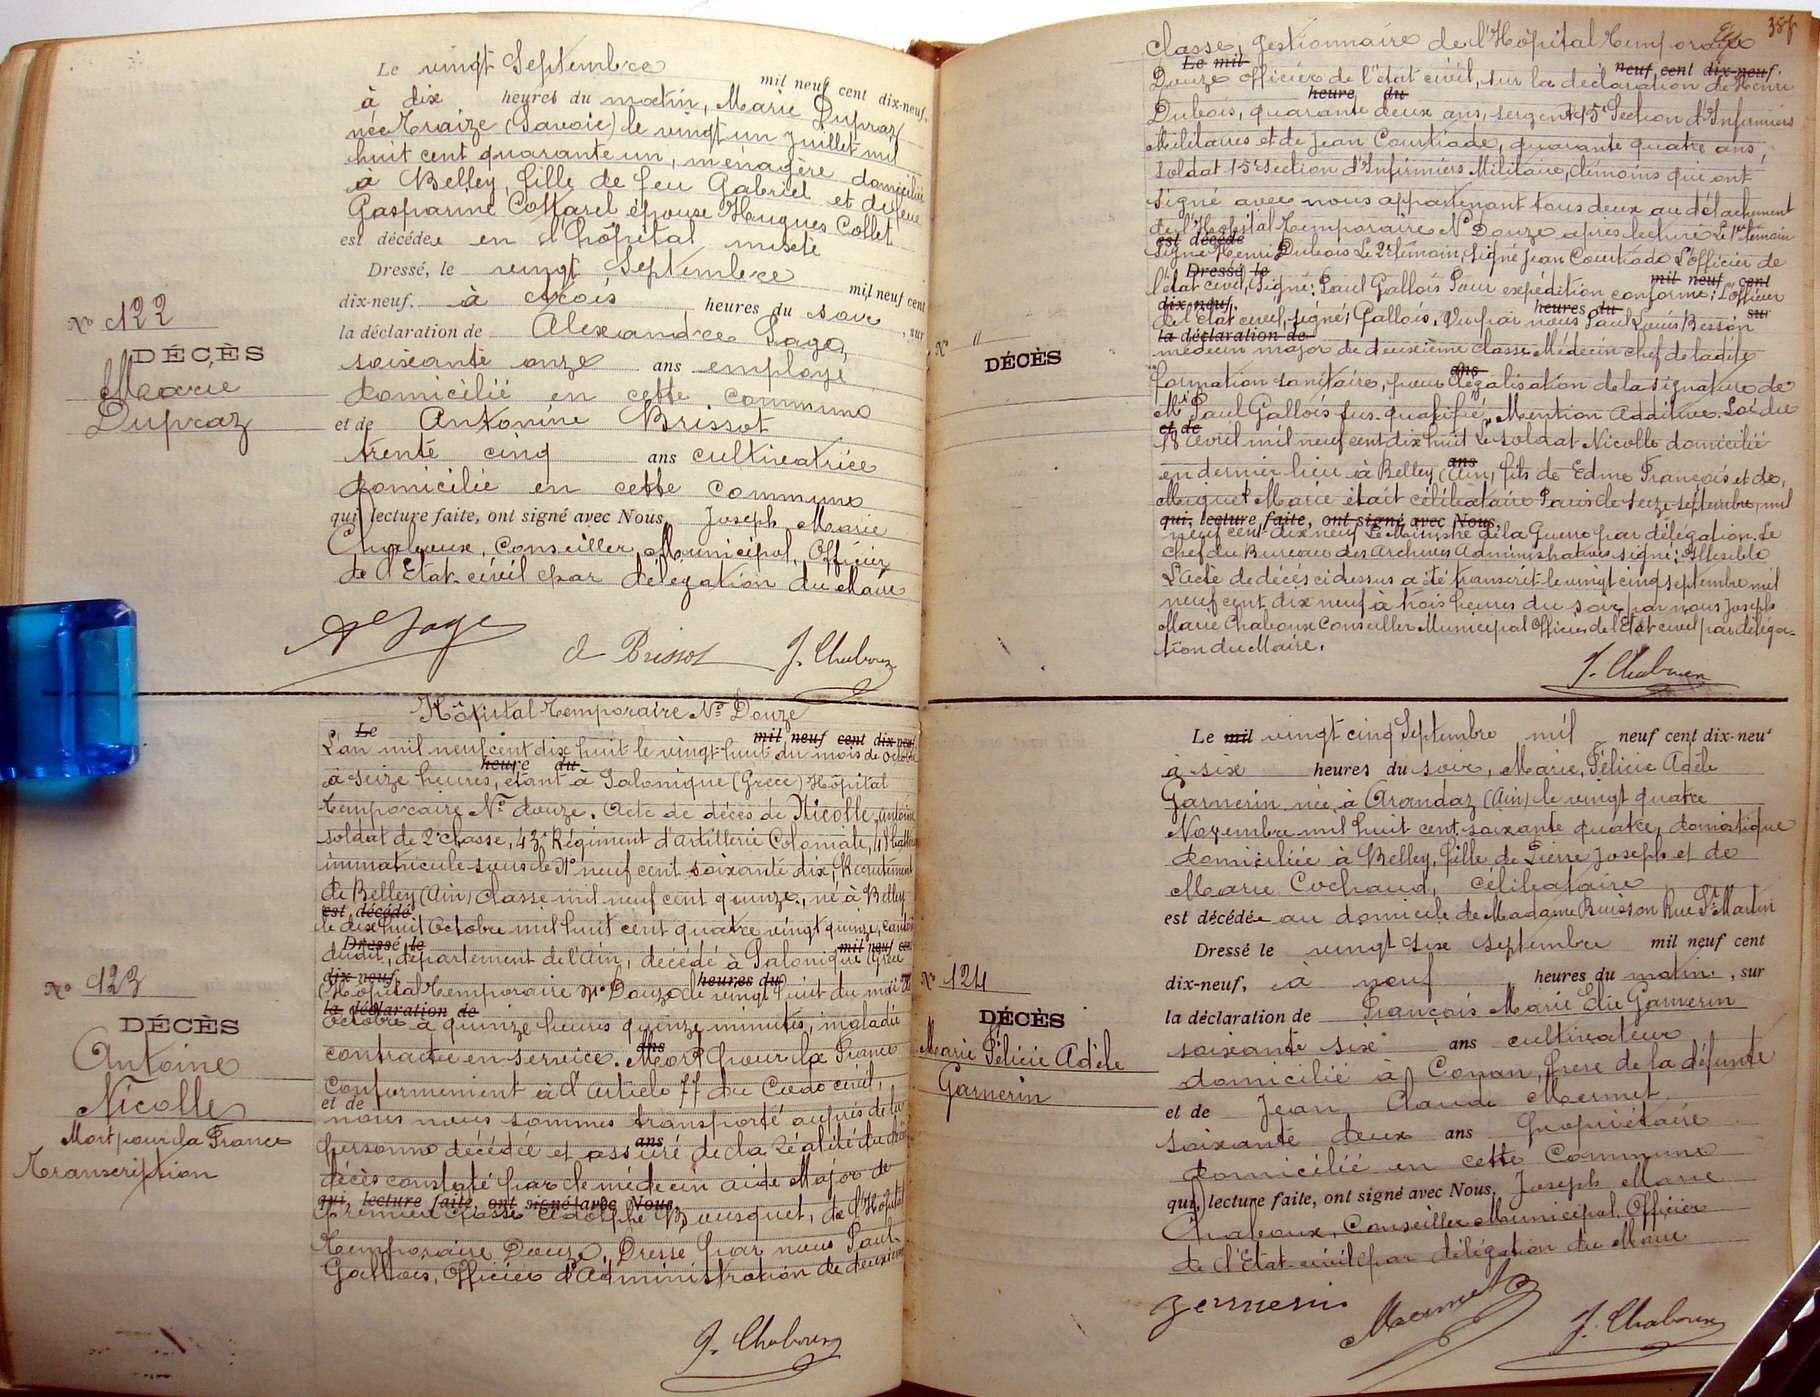 Le vingt Septembre
mil neuf cent dix-neuf,
à dix heures du matin, Marie Dupraz
née Traize (Savoie) le vingt un Juillet mil
huit cent quarante un, ménagère domiciliée
à Belley, fille de feu Gabriel et de feue
Gasparine Cottarel épouse Hugues Collet
est décédée en l'hôpital mixte
Dressé, le vingt Septembre mil neuf cent
dix-neuf. à trois heures du soir, sur
la déclaration de Alexandre Sage,
soixante onze ans employé
domicilié en cette commune
et de Antonine Brissot
trente cinq ans cultivatrice
domicilié en cette commune
qui, lecture faite, ont signé avec Nous, Joseph Marie
Chaboux, Conseiller Municipal, Officier
de l'Etat-civil par délégation du Maire
A Sage
A Brissot J. Chaboux
N° 122
DÉCÈS
Marie
Dupraz
Hôpital Temporaire N° Douze
Le mil neuf cent dix-neuf
L'an mil neuf cent dix huit le vingt-huit du mois de Octobre
heure du
à seize heures, étant à Salonique (Grèce) Hôpital
Temporaire N° douze. Acte de décès de Nicolle Antoine
soldat de 2e classe, 43e Régiment d'Artillerie Coloniale,
immatricule sous le N° neuf cent soixante dix, Recrutement
de Belley (Ain) classe mil neuf cent quinze, né à Belley
est décédé
le dix huit Octobre mil huit cent quatre vingt quinze, canton
Dressé le mil neuf cent
dudit, département de l'Ain, décédé à Salonique Grèce
dix-neuf, heures du
(Hôpital Temporaire N° Douze le vingt huit du mois
la déclaration de
Octobre à quinze heures quinze minutes, maladie
ans
contractée en service. Mort pour la France
Conformément à l'article 77 du Code civil,
et de
nous nous sommes transporté auprès de la
ans
personne décédée et assuré de la réalité du
décès constaté par le médecin aide Major de
qui, lecture faite, ont signé avec Nous,
première classe Adolphe Bousquet, de l'Hôpital
Temporaire Douze, Dressé par nous Paul
Gallois, Officier d'Administration de deuxième
J. Chaboux
N° 123
DÉCÈS
Antoine
Nicolle
Mort pour la France
Transcription
classe, gestionnaire de l'Hôpital Temporaire
Le mil neuf cent dix-neuf.
Douze officier de l'état civil, sur la déclaration de Henri
heure du
Dubois, quarante deux ans, sergent 15e Section d'Infirmiers
Militaires et de Jean Courtiade, quarante quatre ans,
soldat 15e section d'Infirmiers Militaire, témoins qui ont
signé avec nous appartenant tous deux au détachement
de l'Hôpital Temporaire N° Douze après lecture Le 1er témoin
est décédé
signé Henri Dubois Le 2e témoin, signé Jean Courtiade L'officier de
Dressé le mil neuf cent
l'état civil, signé: Paul Gallois Pour expédition conforme: l'officier
dix-neuf. heures du sur
de l'état civil, signé, Gallois. Vu par nous Paul Louis Besson
la déclaration de
médecin major de deuxième classe Médecin chef de ladite
ans
formation sanitaire, pour légalisation de la signature de
Mr Paul Gallois sus-qualifié, Mention Additive. Loi du
et de
18 avril mil neuf cent dix huit Le soldat Nicolle domicilié
ans
en dernier lieu à Belley (Ain, fils de Edme François et de
Miguet Marie était célibataire Paris le seize septembre mil
qui, lecture faite, ont signé avec Nous,
neuf cent dix neuf Le Ministre de la Guerre par délégation. Le
chef du Bureau des Archives Administratives signé: Illisible
L'acte de décès ci dessus a été transcrit le vingt cinq septembre mil
neuf cent dix neuf à trois heures du soir, par nous Joseph
Marie Chaboux Conseiller Municipal Officier de l'Etat civil par déléga-
tion du Maire.
J. Chaboux
N° "
DÉCÈS
Le mil vingt cinq Septembre mil neuf cent dix-neuf
à six heures du soir, Marie, Félicie Adèle
Garnerin née à Arandaz (Ain) le vingt quatre
Novembre mil huit cent soixante quatre, domestique
domiciliée à Belley, fille de Pierre Joseph et de
Marie Cochaud, célibataire
est décédée au domicile de Madame Buisson Rue St Martin
Dressé le vingt six septembre mil neuf cent
dix-neuf, à neuf heures du matin, sur
la déclaration de François Marie Elie Garnerin
soixante six ans cultivateur
domicilié à Conan, frère de la défunte
et de Jean Claude Mermet
soixante deux ans propriétaire
domicilié en cette Commune
qui, lecture faite, ont signé avec Nous, Joseph Marie
Chaboux, Conseiller Municipal, Officier
de l'Etat-civil par délégation du Maire
J. Chaboux
N° 124
DÉCÈS
Marie Félicie Adèle
Garnerin